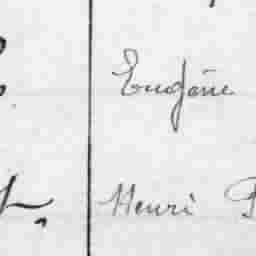 Eugène
Henri